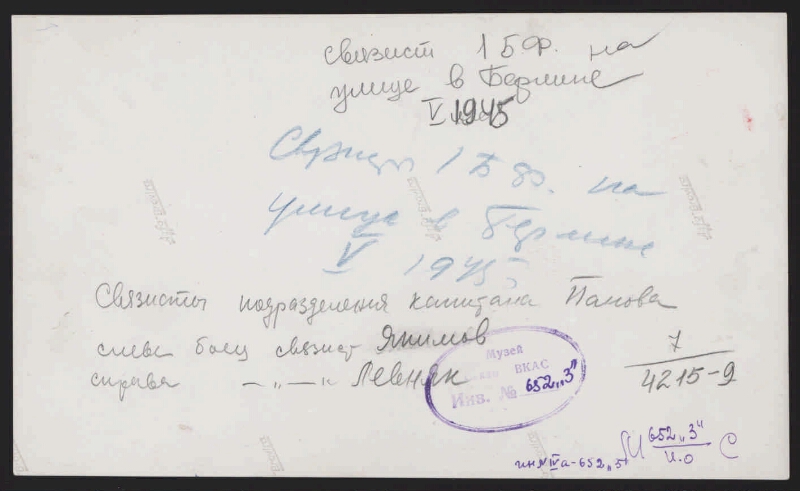 Связист 1 Б Ф. на
улице в Берлине
V 1945
Связисты 1 Б Ф. на
улице в Берлине
V 1945
Связисты подразделения капитана Панова
слева боец связист Якимов
справа —„—„ Левчак
Музей
ВКАС
Инв. № 652„3"
7
4215-9
652„3"
И.О
С
инв № IVа-652„5"